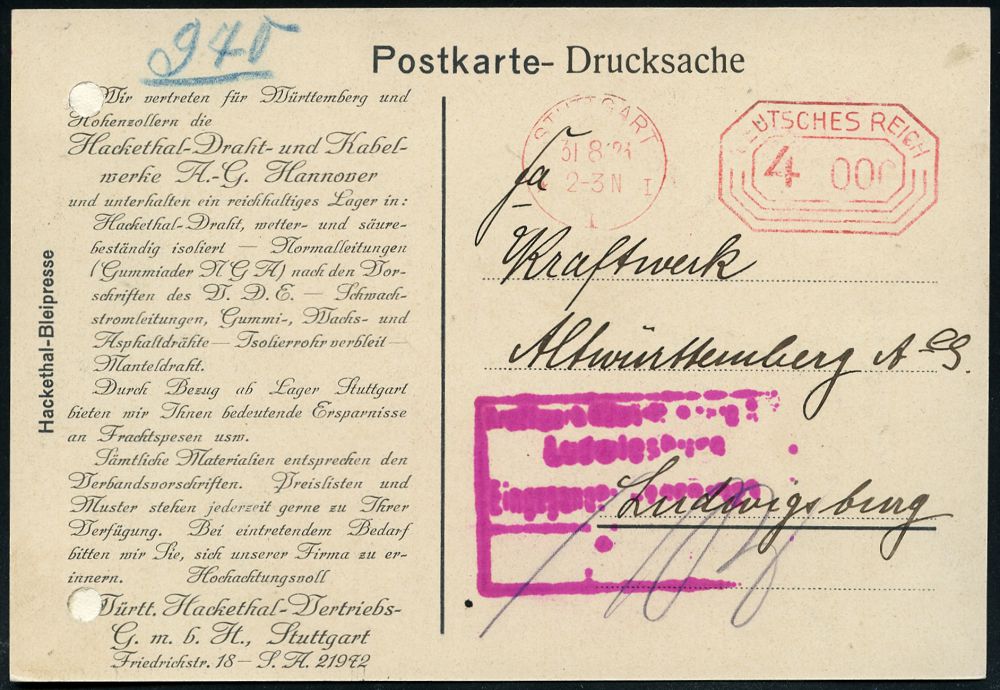 940
Postkarte- Drucksache
Wir vertreten für Württemberg und
Hohenzollern die
Hackethal-Draht- und Kabel-
werke A.-G. Hannover
und unterhalten ein reichhaltiges Lager in:
Hackethal-Draht, wetter- und säure-
beständig isoliert — Normalleitungen
(Gummiader N G A) nach den Vor-
schriften des V. D. E. — Schwach-
stromleitungen, Gummi-, Wachs- und
Asphaltdrähte — Isolierrohr verbleit —
Manteldraht.
Durch Bezug ab Lager Stuttgart
bieten wir Ihnen bedeutende Ersparnisse
an Frachtspesen usw.
Sämtliche Materialien entsprechen den
Verbandsvorschriften. Preislisten und
Muster stehen jederzeit gerne zu Ihrer
Verfügung. Bei eintretendem Bedarf
bitten wir Sie, sich unserer Firma zu er-
innern. Hochachtungsvoll
Württ. Hackethal-Vertriebs-
G. m. b. H., Stuttgart
Friedrichstr. 18 — S. A. 21972
Hackethal-Bleipresse
STUTTGART
31 8 23
2-3 N I
1
DEUTSCHES REICH
4 000
Fa
Kraftwerk
Altwürttemberg A G.
Ludwigsburg
Ludwigsburg
Eingang